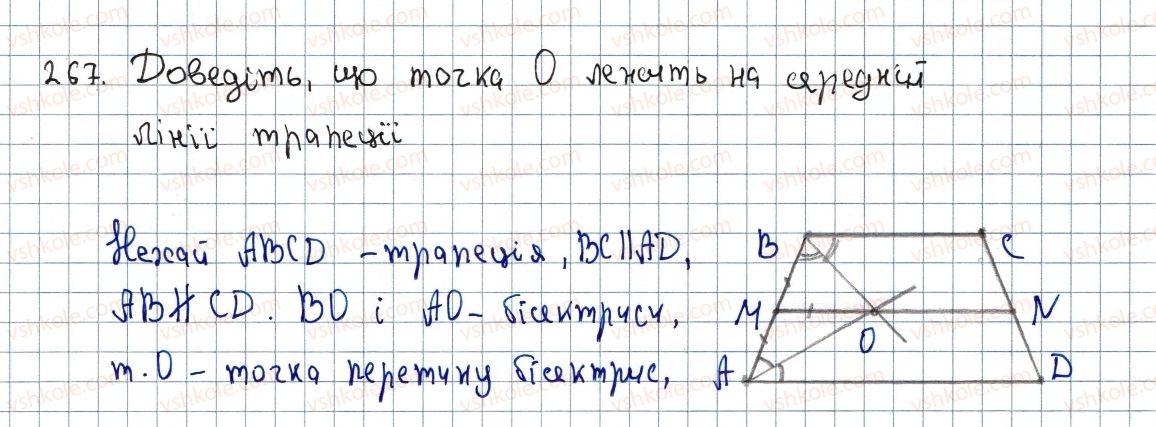 267. Доведіть, що точка O лежить на середній
лінії трапеції
Нехай ABCD – трапеція, BC || AD,
AB ∦ CD. BO і AO – бісектриси,
т. O – точка перетину бісектрис,
B C
M N
O
A D
vshkole.com